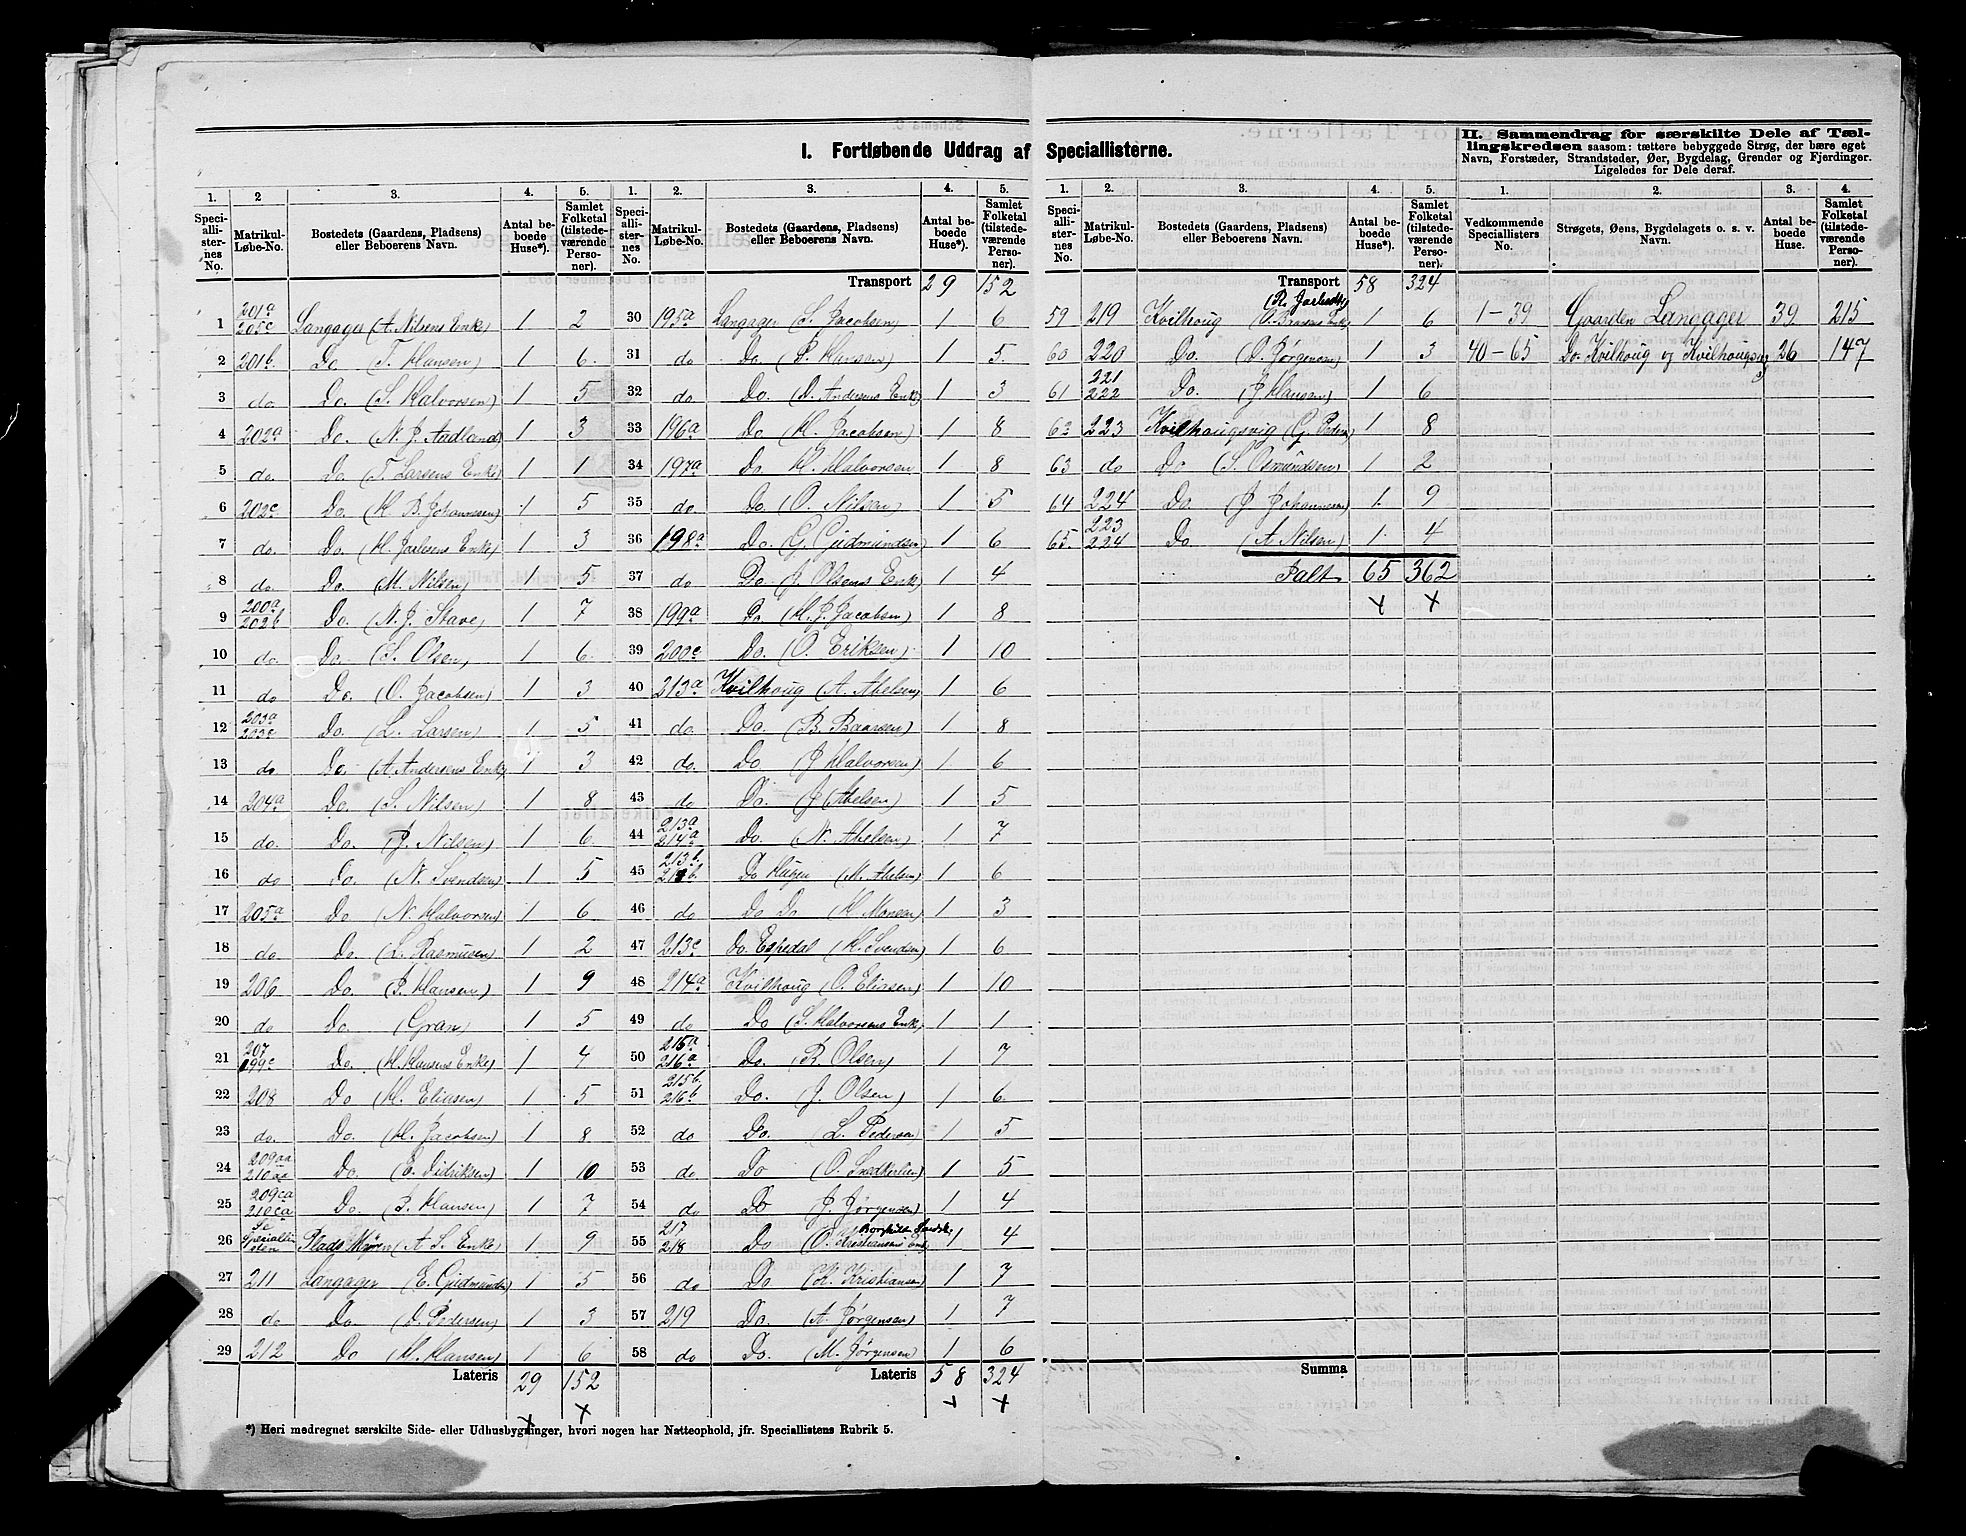 I. Fortløbende Uddrag af Speciallisterne.
II. Sammendrag for særskilte Dele af Tæl-
lingskredsen saasom: tættere bebyggede Strøg, der bære eget
Navn, Forstæder, Strandsteder, Øer, Bygdelag, Grender og Fjerdinger.
Ligeledes for Dele deraf.
1. 2 3. 4. 5.
Speciallisternes No. Matrikul-Løbe-No. Bostedets (Gaardens, Pladsens) eller Beboerens Navn. Antal beboede Huse*). Samlet Folketal (tilstedeværende Personer).
1 201a 205c Langager (A. Nilsens Enke) 1 2
2 201b. Do (T. Hansen) 1 6
3 do Do. (S. Halvorsen) 1 5
4 202a Do. (N. J. Aadland) 1 3
5 do Do. (T. Larsens Enke) 1 1
6 202c Do. (H. B. Johannesen) 1 5
7 do. Do. (H. Enke) 1 3
8 do. Do. (M. Nilsen) 1 5
9 200a 202b Do. (N. J. Stave) 1 7
10 do Do. (S. Olsen) 1 6
11 do Do. (O. Jacobsen) 1 3
12 203a 203c Do. (L. Larsen) 1 5
13 do Do. (A. Andersens Enke) 1 3
14 204a Do. (S. Nilsen) 1 8
15 do. Do. (J. Nilsen) 1 6
16 do Do. (N. Svendsen) 1 5
17 205a Do (N. Halvorsen) 1 6
18 do. Do (L. Rasmusen) 1 2
19 206 Do. (P. Hansen) 1 9
20 do Do. (Gran) 1 5
21 207 199c Do. (H. Hansens Enke) 1 4
22 208 Do (H. Eliasen) 1 5
23 do. Do. (H. Jacobsen) 1 8
24 209aa 210aa Do. (E. Didriksen) 1 10
25 209ca 210ca Do. (B. Hansen) 1 7
26 Se Speciallisten Plads (A. S. Enke) 1 9
27 211 Langager (E. Gudmunds) 1 5
28 do Do (D. Pedersen) 1 3
29 212 Do (H. Hansen) 1 6
Lateris 29 152
1. 2. 3. 4. 5.
Speciallisternes No. Matrikul-Løbe-No. Bostedets (Gaardens, Pladsens) eller Beboerens Navn. Antal beboede Huse*). Samlet Folketal (tilstedeværende Personer).
Transport 29 152
30 195a Langager (S. Jacobsen) 1 6
31 do Do. (P. Hansen) 1 5
32 do. Do. (D. Andersens Enke) 1 3
33 196a Do (H. Jacobsen) 1 8
34 197a Do. H. Halvorsen 1 8
35 do. Do (O. Nilsen) 1 5
36 198a Do. (G. Gudmundsen) 1 6
37 do Do (J. Olsens Enke) 1 4
38 199a Do (H. J. Jacobsen) 1 8
39 200c Do. (O. Eriksen) 1 10
40 213a Kvilhoug (A. Abelsen) 1 6
41 do. Do. (B. Baarsen) 1 8
42 do. Do (J Halvorsen) 1 6
43 do Do. (J. Abelsen) 1 5
44 213a 214a Do. (N. Abelsen) 1 7
45 213b. 214b Do (M. Abelsen) 1 6
46 do Do Do (H Monsen) 1 3
47 213c Do. Espedal (H. Svendsen) 1 6
48 214a Kvilhoug (O. Eliasen) 1 10
49 do Do (S. Halvorsens Enke) 1 1
50 215a 216a Do. (R. Olsen) 1 7
51 215b. 216b Do. (J. Olsen) 1 6
52 do Do. (L. Pedersen) 1 5
53 do Do (O. Snedkerlien) 1 5
54 do Do (J. Jørgensen) 1 4
55 217 218 Do (O. Kristiansens Enke) 1 4
56 do Do. (K. Kristiansen) 1 7
57 219 Do. (A. Jørgensen) 1 7
58 do Do. (M. Jørgensen) 1 6
Lateris 58 324
*) Heri medregnet særskilte Side- eller Udhusbygninger, hvori nogen har Natteophold, jfr. Speciallistens Rubrik 5.
1. 2. 3. 4. 5.
Speciallisternes No. Matrikul-Løbe-No. Bostedets (Gaardens, Pladsens) eller Beboerens Navn. Antal beboede Huse*). Samlet Folketal (tilstedeværende Personer).
Transport 58 324
59 219 Kvilhoug 1 6
60 220 Do. (D. Jørgensen) 1 3
61 221 222 Do. (J Hansen) 1 6
62 223 Kvilhougsvig (G. Peders) 1 8
63 do Do (S. Osmundsen) 1 2
64 224 Do. (J. Johannesen) 1 9
65. 223 224 Do (A Nilsen) 1 4
Ialt 65 362
Summa
1. 2. 3. 4.
Vedkommende Speciallisters No. Strøgets, Øens, Bygdelagets o. s. v. Navn. Antal beboede Huse. Samlet Folketal (tilstedeværende Personer).
1-39 Gaarden Langager 39 215
40-65 Do. Kvilhoug og Kvilhougsvig 26 147